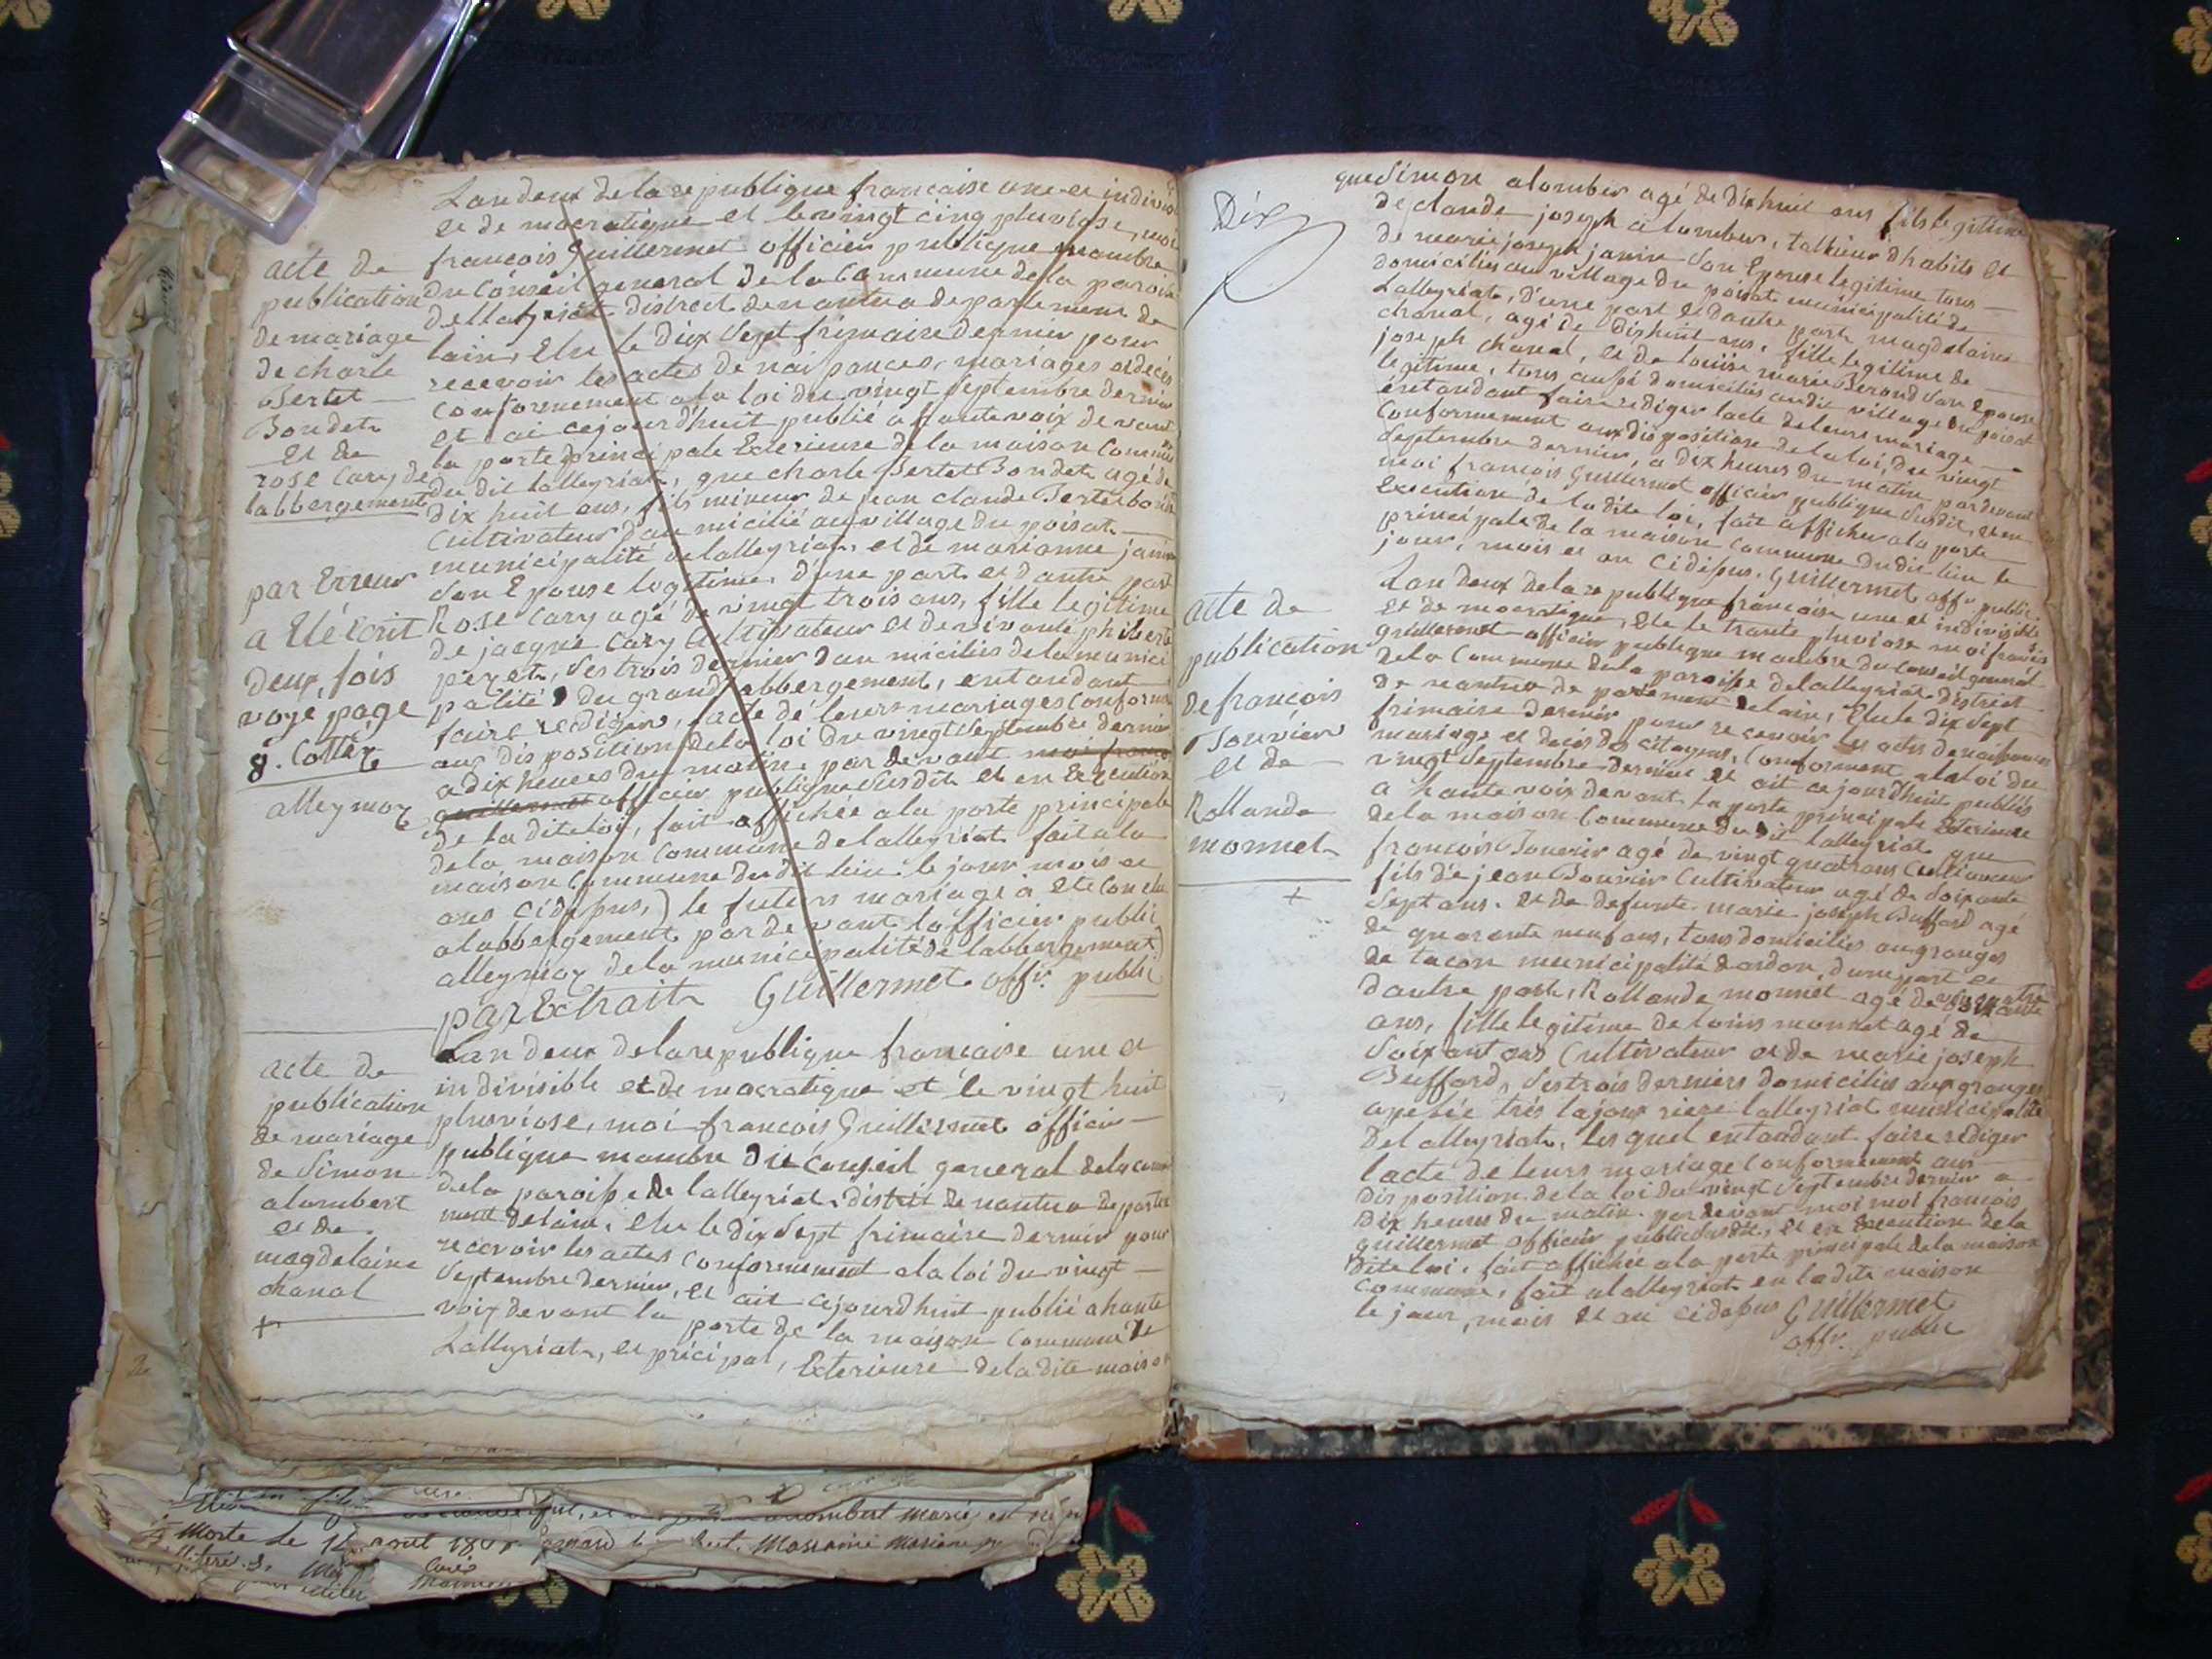 Lan deux de la republique francaise une et indivisi
et de mocratique et le vingt cinq pluviose, moi
acte de
publication
de mariage
de charle
Bertet
Bondet
et de
rose Cary de
labbergement
francois Guillermet officier publique mambre
du Conseil general de la Commune de la paroisse
de lalleyriat district de nantua departement de
lain, Elu le Dix Sept frimaire dernier pour
recevoir les actes de naissances, mariages et décés
Conformement a la loi du vingt Septembre dernier
et ai cejourdhuit publié a haute voix devant
la porte principale Exterieure de la maison Commune
du dit lalleyriat, que charle Bertet Bondet agé de
dix huit ans, fils mineur de jean claude Bertet bond
Cultivateur Dau micilié au village du poisat
municipalité de lalleyriat, et de marianne janin
Son Epouse legitime, d'une part et d'autre part
par Erreur
a Eté écrit
deux fois
voye page
8. Cotté
alleymoz
Rose Cary agé de vingt trois ans, fille legitime
de jacque Cary Cultivateur et de vivante philiberte
peret, Ses trois dernier Dau miciliés de la munici
palité du grand abbergement, entandant
faire rediger, lacte de leurs mariages Conforme
aux disposition de la loi du vingt Septembre dernier
a dix heures du matin, par devant moi franc
guillermet officier publique Susdit et en Execution
de la dite loi, fait affichée a la porte principale
de la maison Commune de lalleyriat fait a la
maison Commune du dit lieu le jour mois et
ans cidessus,) le futurs mariage a eté Conclu
a labbergement par devant lofficier public
alleymoz de la municipalité de labbergement)
par Extrait Guillermet offr. public
acte de
publication
de mariage
de Simon
alombert
et de
magdelaine
chanal
Lan deux de la republique francaise une et
indivisible et de mocratique et le vingt huit
pluviose, moi francois Guillermet officier
publique mambre du Conseil general de la comm
de la paroisse de lalleyriat, distrit de nantua departe
ment de lain, elu le dix Sept frimaire dernier pour
recevoir les actes conformement a la loi du vingt
Septembre dernier, et ait cejourdhuit publié a haute
voix devant la porte de la maison Commune de
Lalleyriat, et pricipal, Exterieure de la dite maison
Morte le
Dix
que Simon alombert agé de Dix huit ans fils legitime
de claude joseph alombert, tallieur dhabits et
de marie joseph janin Son Epouse legitime tous
domiciliés au village du poisat municipalité de
Lalleyriat, d'une part et dautre part magdelaine
chanal, agé de dix huit ans, fille legitime de
joseph chanal, et de louise marie Berond Son Epouse
legitime, tous aussi domiciliés audit village du poisat
entandant faire rediger lacte de leurs mariage
Conformement aux disposition de la loi, du vingt
Septembre dernier, a dix heures du matin pardevant
moi francois Guillermet officier publique Susdit, et en
Execution de la dite loi, fait afficher a la porte
principale de la maison Commune du dit lieu le
jour, mois et an cidessus. Guillermet offr public
acte de
publication
de francois
Bouvier
et de
Rollande
monnet
Lan deux de la republique francaise une et indivisible
et de mocratique, et le trante pluviose moi francois
guillermet officier publique mambre du Conseil general
de la Commune de la paroisse de lalleyriat District
de nantua departement de lain, Elu le dix Sept
frimaire dernier pour recevoir les actes de naissances
mariage et decés des citoyens, Conforment a la loi du
vingt Septembre dernier et ait cejourdhuit publiés
a haute vois devant la porte principale Exterieure
de la maison Commune du dit lalleyriat que
francois Bouvier agé de vingt quatre ans Cultivateur
fils de jean Bouvier Cultivateur agé de Soixante
Sept ans. et de defunte marie joseph Buffard agé
de quarante neuf ans, tous domiciliés au granges
de tacon municipalité dardon, d'une part et
dautre part, Rollande monnet agé de
ans, fille legitime de louis monnet agé de
Soixant ans Cultivateur et de marie joseph
Buffard, Ses trois derniers domiciliés aux granges
apelée trés lajoux riere lalleyriat municipalité
de lalleyriat, les quel entandant faire rediger
lacte de leurs mariage Conformement aux
disposition de la loi du vingt Septembre dernier a
Dix heures du matin. par devant moi moi francois
guillermet officier public Susdit, et en Execution de la
Dite loi, fait affichée a la porte principale de la maison
Commune, fait a lalleyriat en la dite maison
le jour, mois et an cidessus Guillermet
offr. public